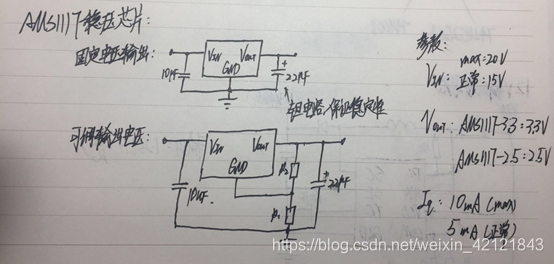 AMS1117-稳压芯片:
固定电压输出:
VIN
VOUT
GND
10μF
22μF
钽电容,保证稳定性
可调输出电压:
VIN
VOUT
GND
10μF
R2
R1
22μF
参数:
VIN: max=20V
正常:15V
VOUT: AMS1117-3.3: 3.3V
AMS1117-2.5: 2.5V
Iq: 10mA (max)
5mA (正常)
https://blog.csdn.net/weixin_42121843